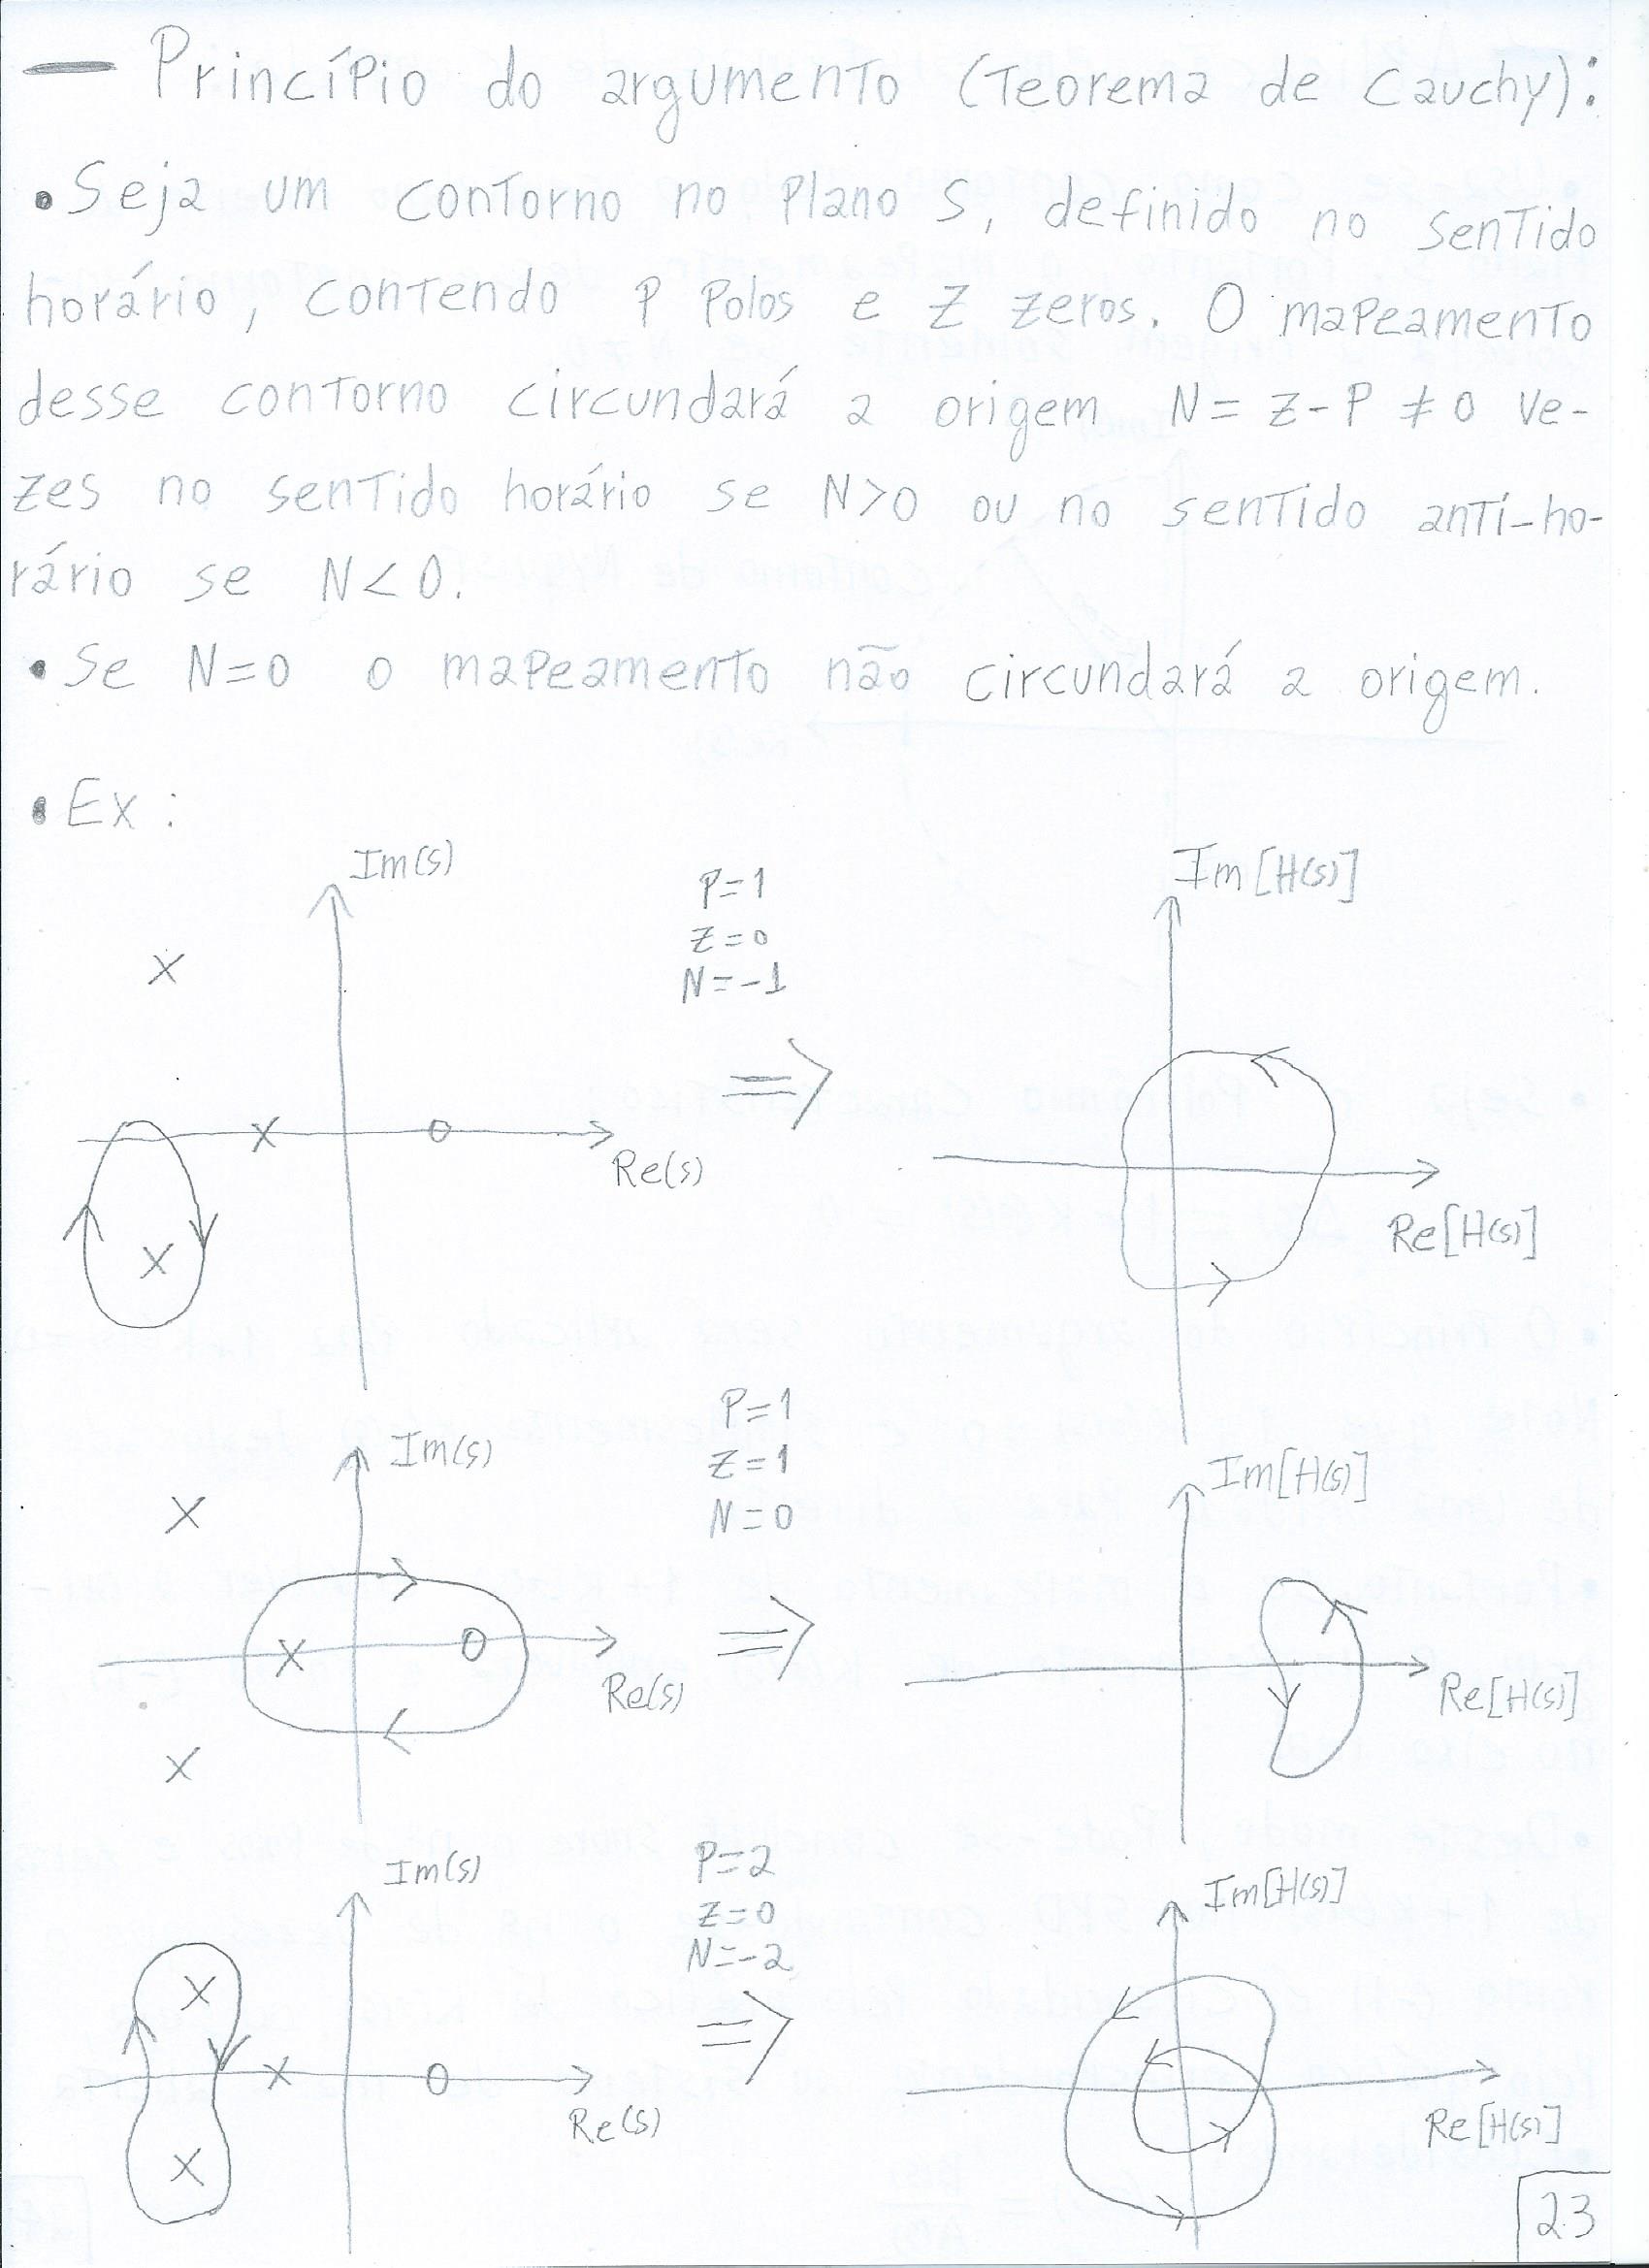 — Princípio do argumento (Teorema de Cauchy):
• Seja um contorno no plano S, definido no sentido
horário, contendo P polos e Z zeros. O mapeamento
desse contorno circundará a origem N = Z - P ≠ 0 ve-
zes no sentido horário se N>0 ou no sentido anti-ho-
rário se N<0.
• Se N=0 o mapeamento não circundará a origem.
• Ex:
Im(s)
P=1
Z=0
N=-1
Im[H(s)]
X
X
O
=>
Re(s)
X
Re[H(s)]
Im(s)
P=1
Z=1
N=0
Im[H(s)]
X
X
O
=>
Re(s)
Re[H(s)]
X
Im(s)
P=2
Z=0
N=-2
Im[H(s)]
X
=>
X
O
Re(s)
Re[H(s)]
X
23